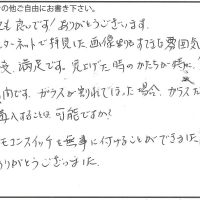 の他ご自由にお書き下さい。
も良いです！ありがとうございます。
ターネットで拝見した画像
雰囲気
満足です。見上げた時のかたちが特に
内です。ガラスが割れてしまった場合、ガラスだ
購入することは可能ですか？
モコンスイッチも無事に付けることができました
ありがとうございました